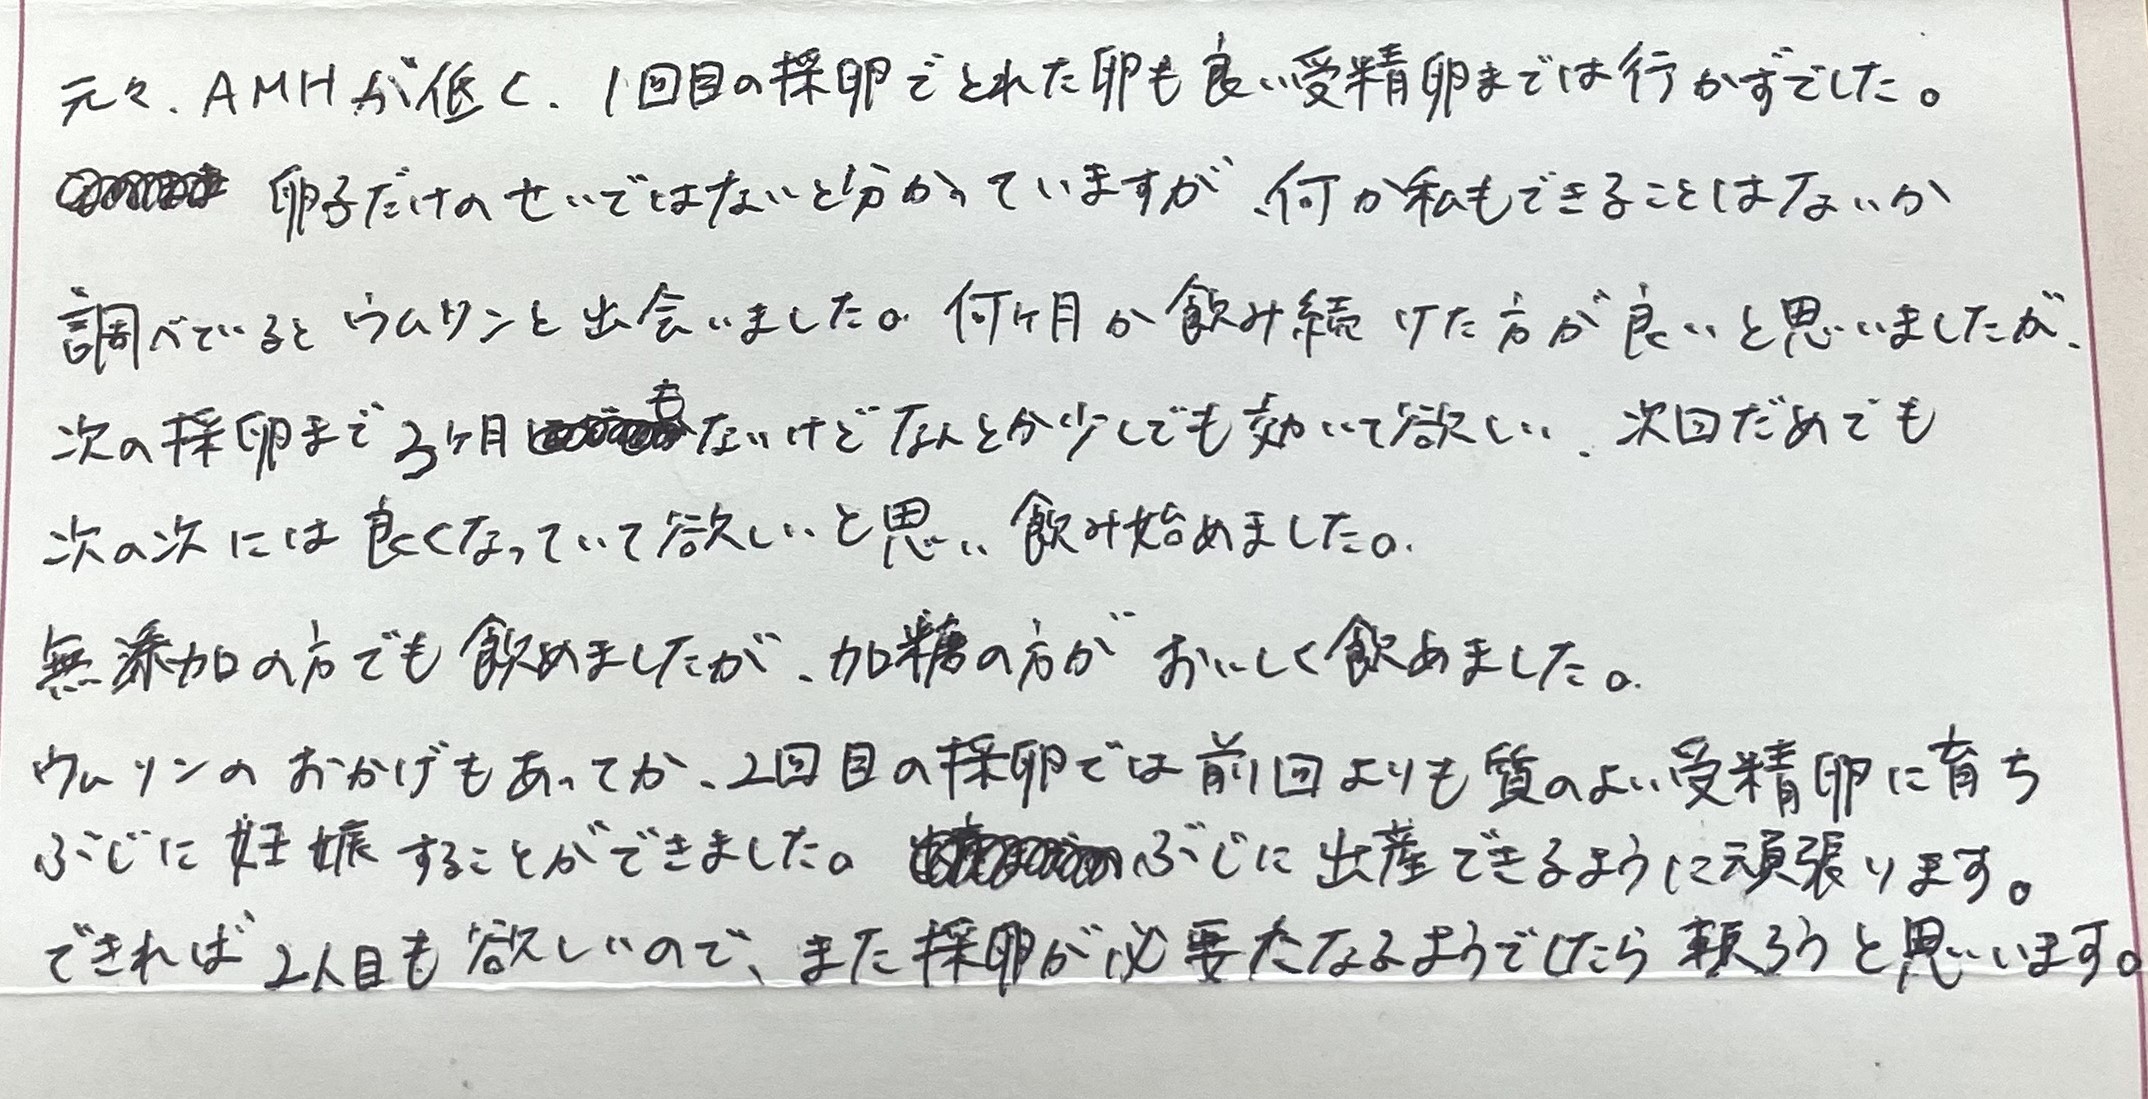 元々、AMHが低く、1回目の採卵でとれた卵も良い受精卵までは行かずでした。
卵子だけのせいではないと分かっていますが、何か私もできることはないか
調べているとウムリンと出会いました。何ヶ月か飲み続けた方が良いと思いましたが、
次の採卵まで3ヶ月もないけどなんとか少しでも効いて欲しい、次回だめでも
次の次には良くなっていて欲しいと思い飲み始めました。
無添加の方でも飲めましたが、加糖の方がおいしく飲めました。
ウムリンのおかげもあってか、2回目の採卵では前回よりも質のよい受精卵に育ち
ぶじに妊娠することができました。ぶじに出産できるように頑張ります。
できれば2人目も欲しいので、また採卵が必要になるようでしたら頼ろうと思います。